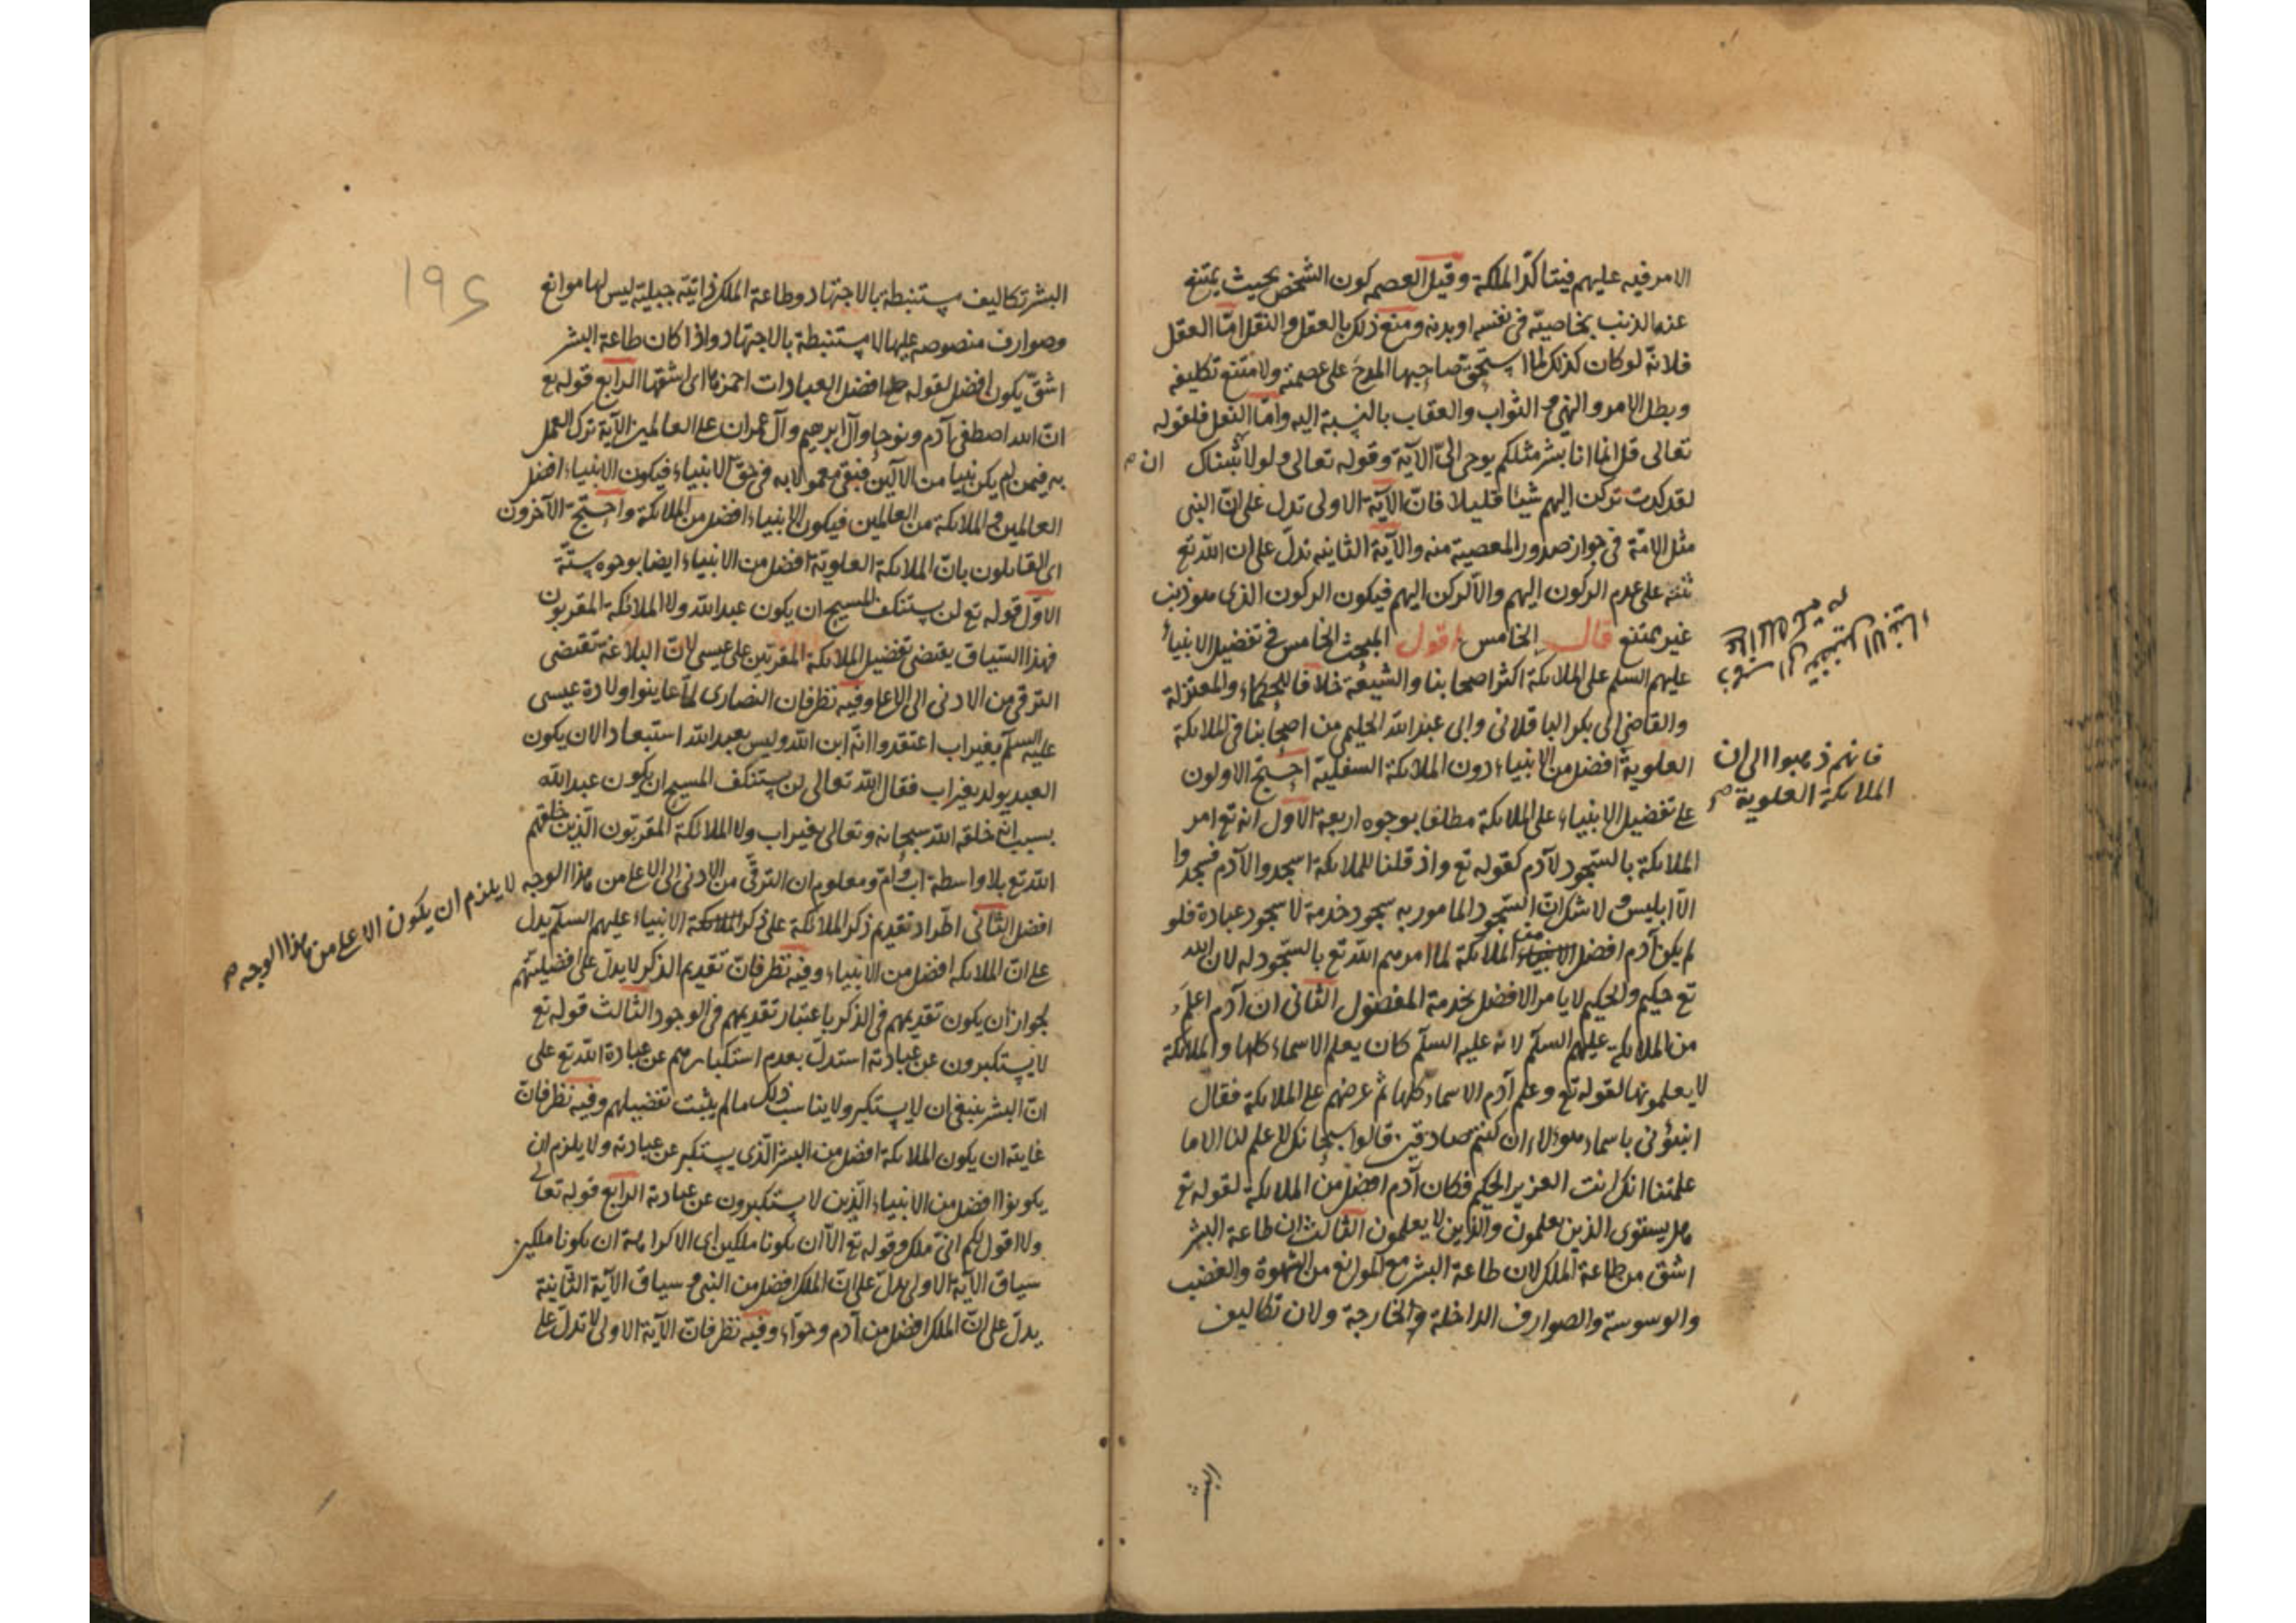 الامر فيه عليهم فيتاكد الملكة وقيل العصمه كون الشخص بحيث يمتنع
عنه الذنب بخاصيته في نفسه او بدنه ومنع ذلك بالعقل والنقل امّا العقل
فلانّه لو كان كذلك لما استحق صاحبها المدح على عصمته ولامتنع تكليفه
وبطل الامر والنهي و الثواب والعقاب بالنسبة اليه وامّا النقل فلقوله
تعالى قل انما انا بشر مثلكم يوحى اليّ الآية وقوله تعالى ولولا ثبتناك
ان
لقد كدت تركن اليهم شيئا قليلا فانّ الآية الاولى تدل على انّ النبي
مثل الامّة في جواز صدور المعصية منه والآية الثانيه تدلّ على ان الله تع
ثبته على عدم الركون اليهم والّا لركن اليهم فيكون الركون الذى هو ذنب
غير ممتنع قال الخامس اقول المبحث الخامس في تفضيل الانبياء
عليهم السلم على الملائكة اكثر اصحابنا والشيعة خلافا للحكماء والمعتزلة
والقاضي ابى بكر الباقلانى وابى عبد الله الحليمى من اصحابنا فى الملائكة
فانهم ذهبوا الى ان
الملائكة العلوية
العلوية افضل من الانبياء دون الملائكة السفلية احتج الاولون
على تفضيل الانبياء على الملائكة مطلقا بوجوه اربعة الاول انه تع امر
الملائكة بالسجود لآدم كقوله تع واذ قلنا للملائكة اسجدوا لآدم فسجدوا
الّا ابليس و لا شك انّ السجود المامور به سجود خدمة لا سجود عبادة فلو
لم يكن آدم افضل من الملائكة لما امرهم الله تع بالسّجود له لان الله
تع حكيم والحكيم لا يامر الافضل بخدمة المفضول الثانى ان آدم اعلم
من الملائكة عليهم السلم لانه عليه السلم كان يعلم الاسماء كلها والملائكة
لا يعلمونها لقوله تع وعلم آدم الاسماء كلها ثم عرضهم على الملائكة فقال
انبئونى باسماء هؤلاء ان كنتم صادقين قالوا سبحانك لا علم لنا الا ما
علمتنا انك انت العزيز الحكيم فكان آدم افضل من الملائكة لقوله تع
هل يستوى الذين يعلمون والذين لا يعلمون الثالث ان طاعة البشر
اشق من طاعة الملك لان طاعة البشر مع الموانع من الشهوة والغضب
والوسوسة والصوارف الداخلة والخارجة ولان تكاليف
البشر
١٩٤
البشر تكاليف مستنبطة بالاجتهاد وطاعة الملك ذاتية جبلية ليس لها موانع
وصوارف منصوصه عليها لا مستنبطة بالاجتهاد واذا كان طاعة البشر
اشقّ يكون افضل لقوله افضل العبادات احمزها اى اشقها الرابع قوله تع
انّ الله اصطفى آدم ونوحا وآل ابرهيم وآل عمران على العالمين الآية ترك العمل
به فيمن لم يكن نبيا من الآلين فبقى معمولا به فى حق الانبياء فيكون الانبياء افضل
العالمين و الملائكة من العالمين فيكون الانبياء افضل من الملائكة واحتج الآخرون
اى القائلون بانّ الملائكة العلوية افضل من الانبياء ايضا بوجوه ستّة
الاوّل قوله تع لن يستنكف المسيح ان يكون عبد الله ولا الملائكة المقربون
فهذا السّياق يقتضى تفضيل الملائكة المقرّبين على عيسى لانّ البلاغة تقتضى
الترقى من الادنى الى الاعلى وفيه نظر فان النصارى لما عاينوا ولادة عيسى
عليه السلم بغير اب اعتقدوا انّه ابن الله وليس بعبد الله استبعادا لان يكون
العبد يولد بغير اب فقال الله تعالى لن يستنكف المسيح ان يكون عبد الله
بسبب انّه خلقه الله سبحانه وتعالى بغير اب ولا الملائكة المقربون الّذين خلقهم
الله تع بلا واسطة اب وامّ ومعلوم ان الترقّى من الادنى الى الاعلى من هذا الوجه
لا يلزم ان يكون الاعلى من هذا الوجه
افضل الثانى اطّراد تقديم ذكر الملائكة على ذكر الانبياء عليهم السلم يدل
على انّ الملائكة افضل من الانبياء وفيه نظر فانّ تقديم الذكر لا يدلّ على افضليتهم
لجواز ان يكون تقديمهم فى الذكر باعتبار تقديمهم فى الوجود الثالث قوله تع
لا يستكبرون عن عبادته استدلّ بعدم استكبارهم عن عبادة الله تع على
انّ البشر ينبغى ان لا يستكبر ولا يناسب ذلك ما لم يثبت تفضيلهم وفيه نظر فانّ
غايته ان يكون الملائكة افضل من البشر الّذى يستكبر عن عبادته ولا يلزم ان
يكونوا افضل من الانبياء الّذين لا يستكبرون عن عبادته الرابع قوله تعالى
ولا اقول لكم انى ملك وقوله تع الّا ان تكونا ملكين اى الا كراهة ان تكونا ملكين
سياق الآية الاولى يدلّ على انّ الملك افضل من النبى و سياق الآية الثانية
يدلّ على انّ الملك افضل من آدم وحوّاء وفيه نظر فانّ الآية الاولى لا تدلّ على